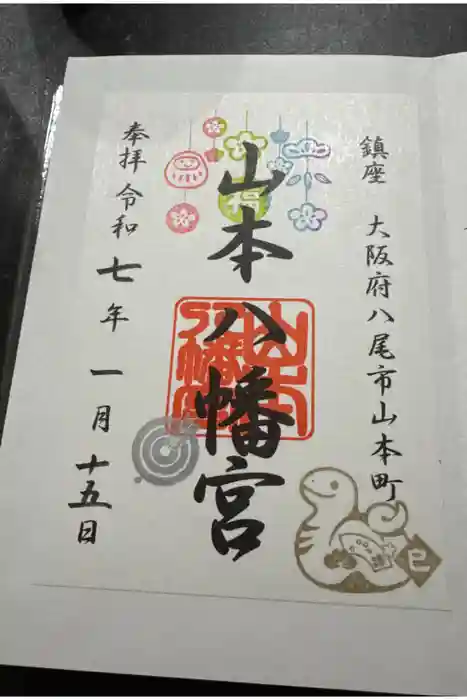 鎮座 大阪府八尾市山本町
山本八幡宮
福
山本八幡宮
巳
奉拝 令和七年 一月十五日